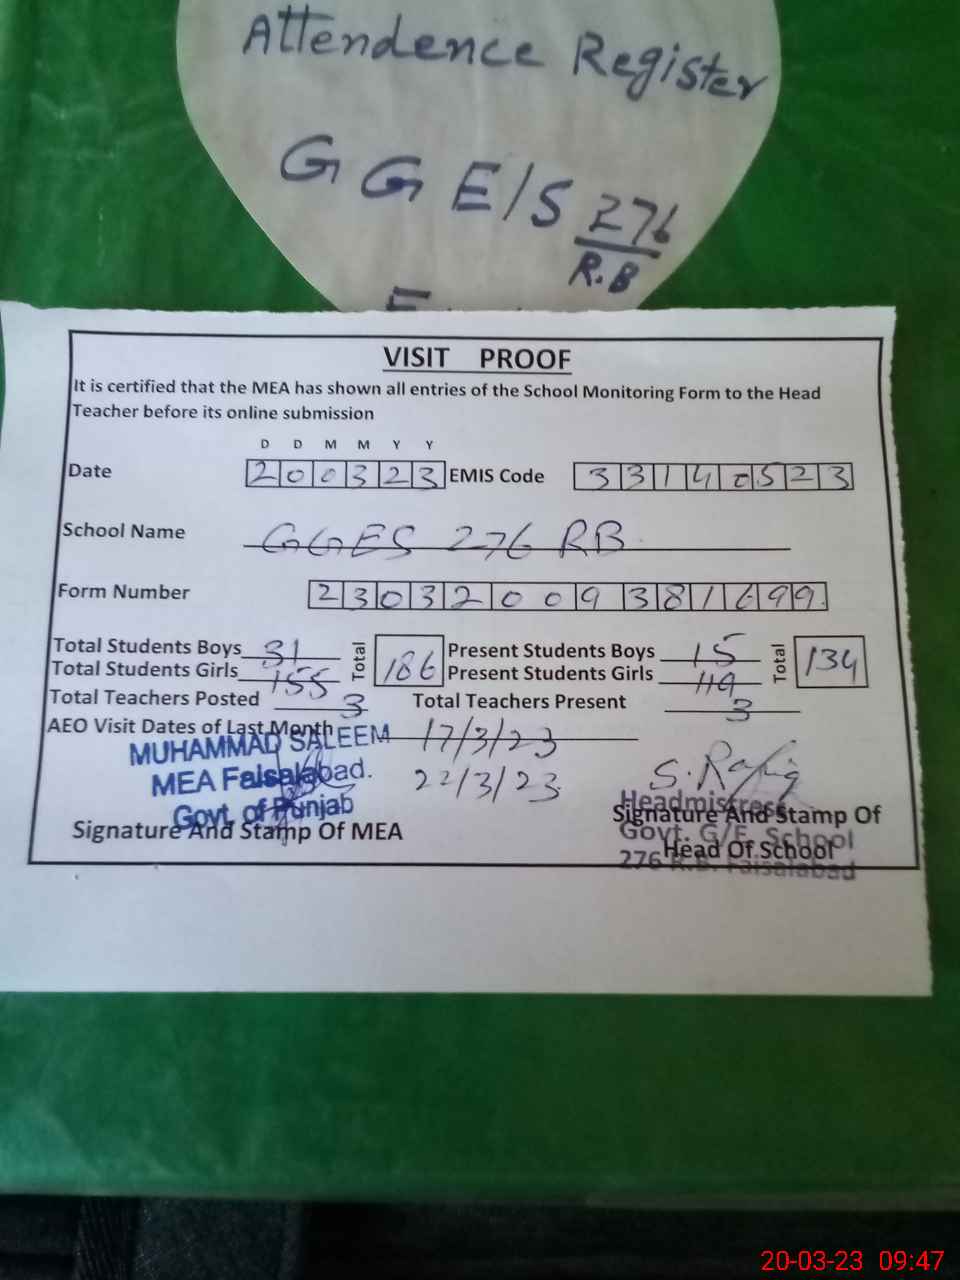 Attendence Register
G G E/S 276
R.B
VISIT PROOF
It is certified that the MEA has shown all entries of the School Monitoring Form to the Head
Teacher before its online submission
D D M M Y Y
Date 200323 EMIS Code 33140523
School Name GGES 276 RB
Form Number 23032009381699
Total Students Boys 31 Total 186 Present Students Boys 15 Total 134
Total Students Girls 155 Present Students Girls 119
Total Teachers Posted 3 Total Teachers Present 3
AEO Visit Dates of Last Month 17/3/23
22/3/23
MUHAMMAD SALEEM
MEA Faisalabad.
Govt. of Punjab
Signature And Stamp Of MEA
S. Rafiq
Headmistress
Signature And Stamp Of
Govt. G/E. School
Head Of School
276 R.B. Faisalabad
20-03-23 09:47